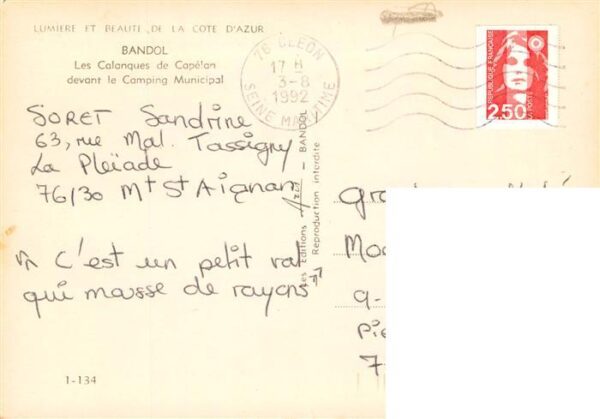 LUMIERE ET BEAUTE DE LA COTE D'AZUR
BANDOL
Les Calanques de Capélan
devant le Camping Municipal
76 CLEON
17 H
3-8
1992
SEINE MARITIME
REPUBLIQUE FRANÇAISE
LA POSTE
2,50
SORET Sandrine
63, rue Mal. Tassigny
La Pleïade
76130 Mt St Aignan
"C'est un petit rat
qui mausse de rayons"
Les Editions - BANDOL
Reproduction interdite
Gra
Mo
9-
Pie
7
1-134